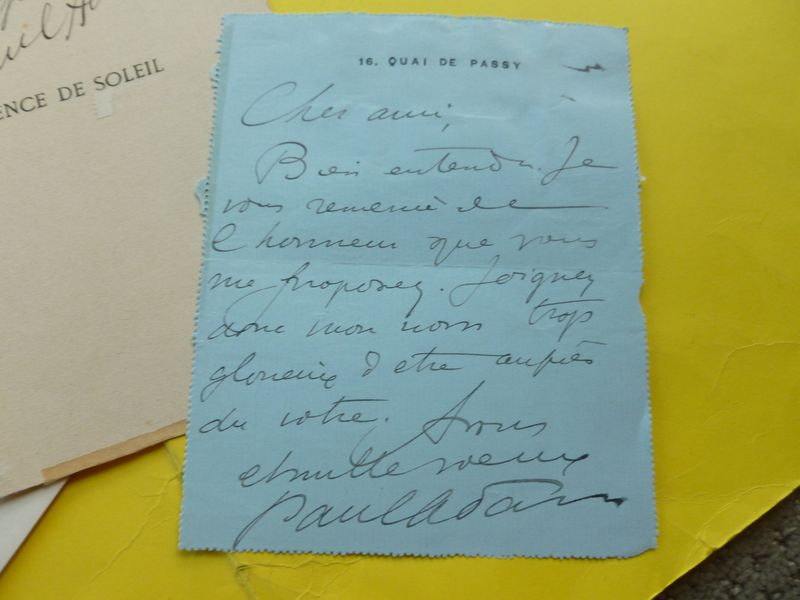 ENCE DE SOLEIL
16, QUAI DE PASSY
Cher ami,
Bien entendu. Je
vous remercie de
l'honneur que vous
me proposez. Joignez
donc mon nom trop
glorieux d'etre auprès
du votre. A vous
et mille voeux
Paul Adam